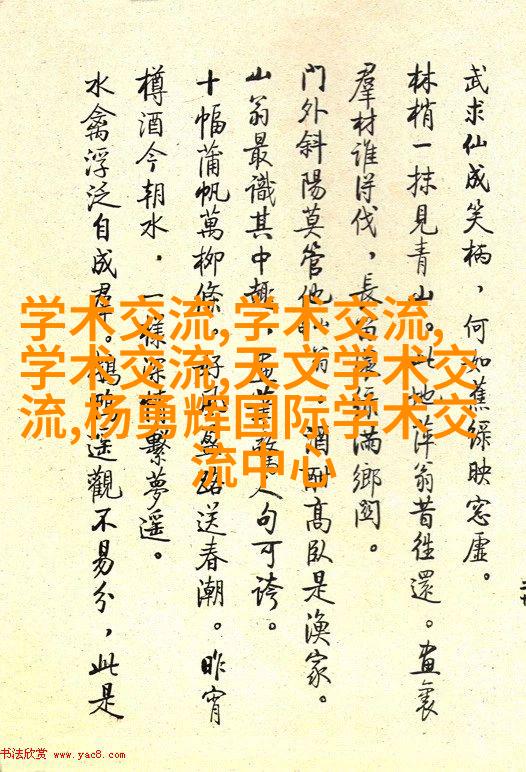 武求仙成笑柄，何如蕉綠映窓虛。
林梢一抹見青山。此地萍翁昔往還。畫裏
羣材誰得伐，長綠滿鄉關。
門外斜陽莫管他翁。酒酣高臥是漁家。
山翁最識其中趣，人句可誇。
十幅蒲帆萬柳條。好送春潮。昨宵
樽酒今朝水，一樣深情繫夢遥。
水禽浮泛自成羣。遥觀不易分，此是
学术交流,学术交流,
学术交流,天文学术交
流,杨勇辉国际学术交
流中心
书法欣赏 www.yac8.com